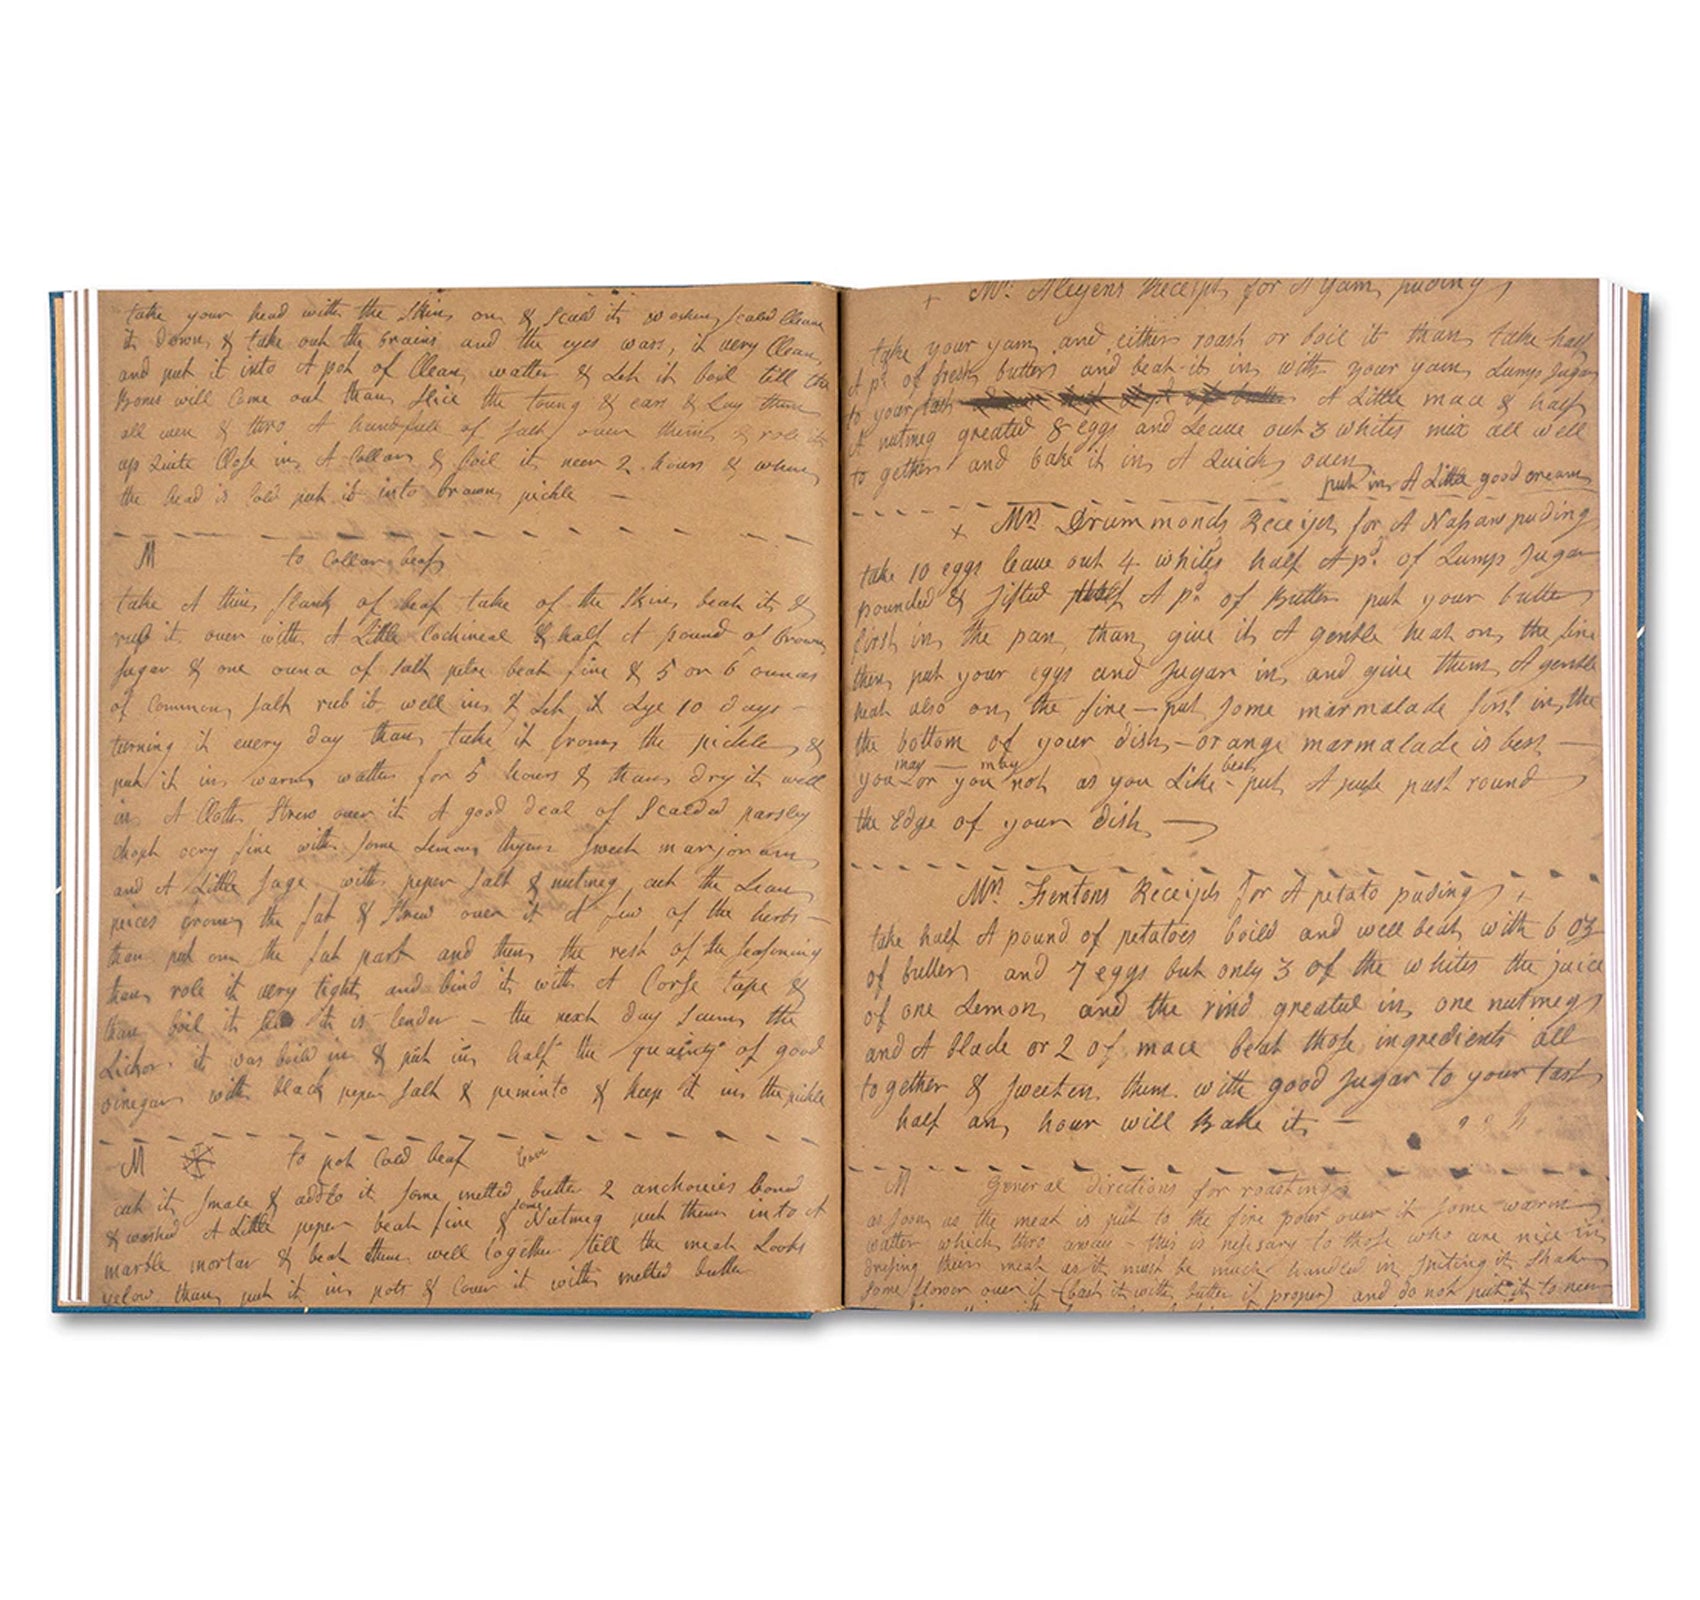 take your head with the Skin on & Scald it when Scald Clean
it Down, & take out the brains and the eyes wass, it very Clean
and put it into A pot of Clean watter & Let it boil till the
Bones will Come out than Slice the toung & ears & Lay them
all over & thro A handfull of salt over them & role it
up Quite Close in A Collar & boil it neer 2 hours & when
the head is Cold put it into brown pickle —
M to Collar beaf
take A thin flank of beaf take of the Skin beat it &
rub it over with A Little Cochineal & half A pound of brown
sugar & one ounce of salt petre beat fine & 5 or 6 ounces
of Common salt rub it well in & Let it Lye 10 days —
turning it every day than take it from the pickle &
put it in warm watter for 5 hours & than dry it well
in A Cloth Strew over it A good deal of Scalded parsley
chopt very fine with some Lemon thyme sweet marjoram
and A Little sage with peper salt & nutmeg cut the Lean
peices from the fat & Strew over it A few of the herbs —
than put on the fat part and then the rest of the seasoning
than role it very tight and bind it with A Corse tape &
than boil it till it is tender — the next day Scum the
Lichor it was boild in & put in half the quainty of good
vinegar with black peper salt & peminto & keep it in the pickle
M to pot Cold beaf
cut it smale & add to it some melted butter 2 anchovies boned
& washed A Little peper beat fine & some Nutmeg put them into A
marble mortar & beat them well together till the meat Looks
yelow than put it in pots & Cover it with melted butter
+ Mrs. Receipt for A Yam puding
take your yam and either roast or boil it than take half
A pd. of fresh butter and beat it in with your yam Lump sugar
to your tast A Little mace & half
A nutmeg greated 8 eggs and Leave out 3 whites mix all well
to gether and bake it in A Quick oven
put in A Little good cream
+ Mrs. Drummonds Receipt for A Nassaw puding
take 10 eggs leave out 4 whites half A pd. of Lump sugar
pounded & sifted A pd. of Butter put your butter
first in the pan than give it A gentle heat on the fire
then put your eggs and sugar in and give them A gentle
heat also on the fire — put some marmalade first in the
the bottom of your dish — orange marmalade is best —
you may — or you may not as you Like best — put A pufe past round
the edge of your Dish —
Mrs. Fentons Receipt for A petato puding +
take half A pound of petatoes boild and well beat with 6 oz
of butter and 7 eggs but only 3 of the whites the juice
of one Lemon and the rind greated in one nutmeg
and A blade or 2 of mace beat those ingredients all
together & sweeten them with good sugar to your tast
half an hour will Bake it —
M General directions for roasting
as soon as the meat is put to the fire power over it some warm
watter which thro away this is nessary to those who are nice in
dresing their meat as it must be much handled in spiting it Shake
some flower over it (bast it with butter if proper) and do not put it to neer